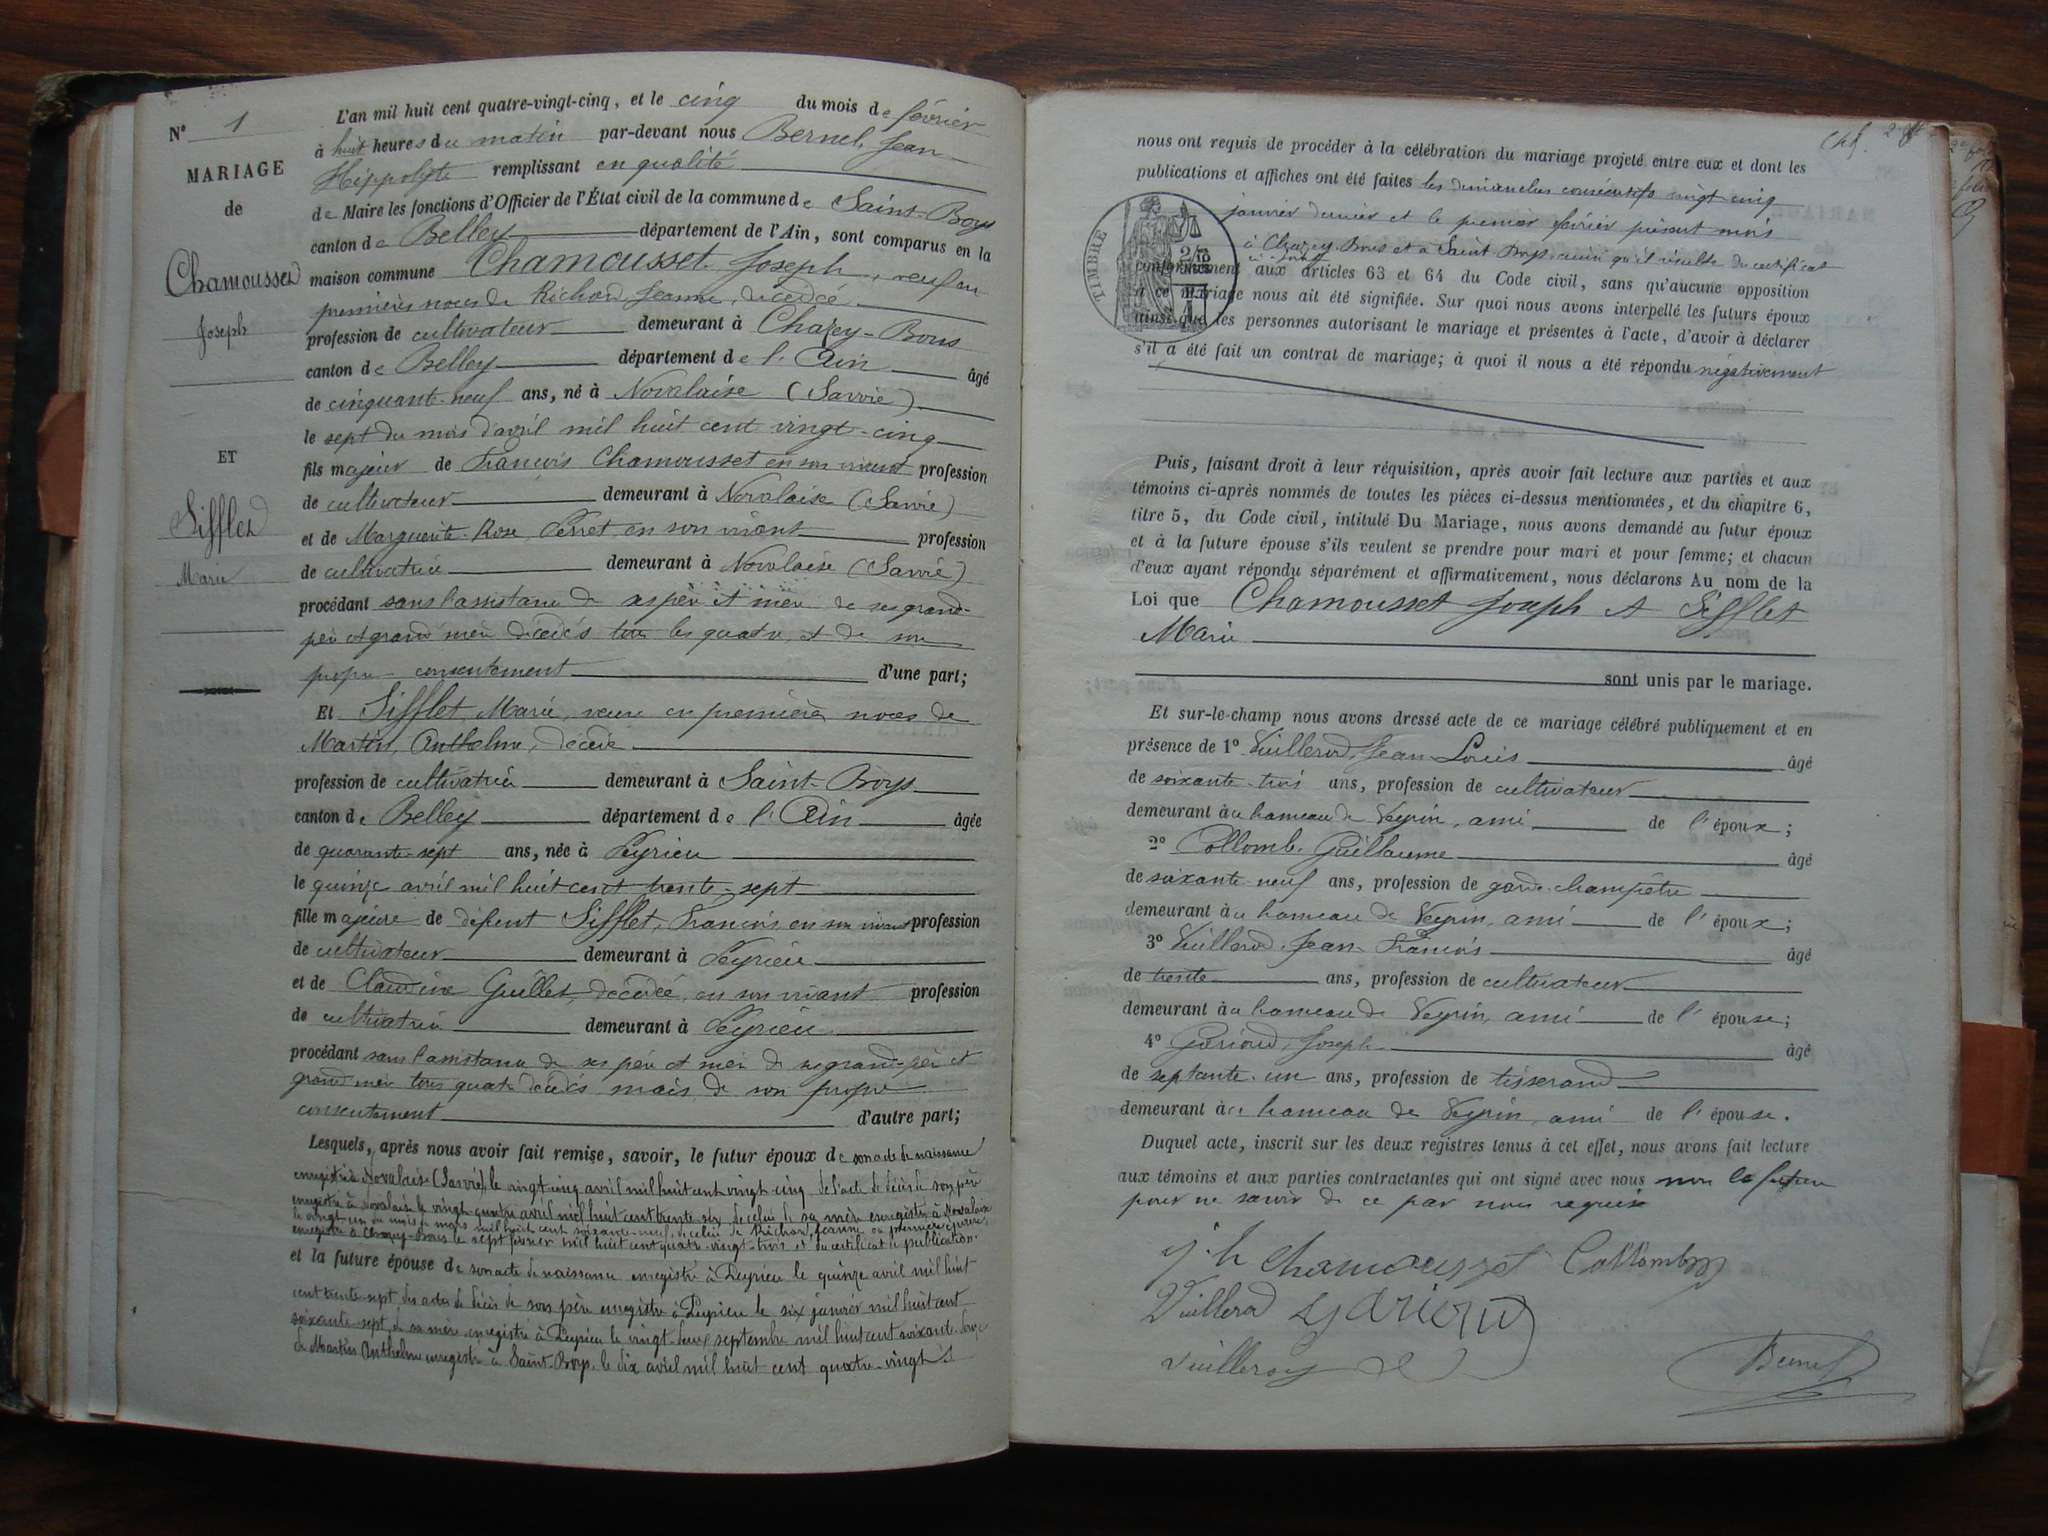 N° 1
MARIAGE
de
Chamousset
Joseph
ET
Sifflet
Marie
L'an mil huit cent quatre-vingt-cinq, et le cinq du mois de février
à huit heures du matin par-devant nous Bernel, Jean
Hippolyte remplissant en qualité
de Maire les fonctions d'Officier de l'État civil de la commune de Saint-Boys
canton de Belley département de l'Ain, sont comparus en la
maison commune Chamousset Joseph, veuf en
premières noces de Richard Jeanne, décédée
profession de cultivateur demeurant à Chazey-Bons
canton de Belley département de l'Ain âgé
de cinquante-neuf ans, né à Novalaise (Savoie)
le sept du mois d'avril mil huit cent vingt-cinq
fils majeur de François Chamousset en son vivant profession
de cultivateur demeurant à Novalaise (Savoie)
et de Marguerite Rose Perret en son vivant profession
de cultivatrice demeurant à Novalaise (Savoie)
procédant sans l'assistance de ses père et mère de ses grand-
père et grand'mère décédés tous les quatre et de son
propre consentement d'une part;
Et Sifflet, Marie, veuve en premières noces de
Martin, Anthelme, décédé
profession de cultivatrice demeurant à Saint-Boys
canton de Belley département de l'Ain âgée
de quarante-sept ans, née à Peyrieu
le quinze avril mil huit cent trente-sept
fille majeure de défunt Sifflet, François en son vivant profession
de cultivateur demeurant à Peyrieu
et de Claudine Guillet, décédée, en son vivant profession
de cultivatrice demeurant à Peyrieu
procédant sans l'assistance de ses père et mère de ses grand-père et
grand'mère tous quatre décédés mais de son propre
consentement d'autre part;
Lesquels, après nous avoir fait remise, savoir, le futur époux de son acte de naissance
enregistré à Novalaise (Savoie) le vingt cinq avril mil huit cent vingt-cinq de l'acte de décès de son père
enregistré à Novalaise le vingt-quatre avril mil huit cent trente-six, de celui de sa mère enregistré à Novalaise
le vingt un du mois de mars mil huit cent soixante-neuf, de celui de Richard, Jeanne sa première épouse,
enregistré à Chazey-Bons le sept février mil huit cent quatre-vingt-trois et du certificat de publication.
et la future épouse de son acte de naissance enregistré à Peyrieu le quinze avril mil huit
cent trente-sept, des actes de décès de son père enregistré à Peyrieu le six janvier mil huit cent
soixante-sept, de sa mère enregistré à Peyrieu le vingt-deux septembre mil huit cent soixante
de Martin Anthelme enregistré à Saint-Boys, le dix avril mil huit cent quatre-vingts
nous ont requis de procéder à la célébration du mariage projeté entre eux et dont les
publications et affiches ont été faites les dimanches consécutifs vingt cinq
janvier dernier et le premier février présent mois
à Chazey-Bons et à Saint-Boys ainsi qu'il résulte du certificat
ci-joint
TIMBRE
conformément aux articles 63 et 64 du Code civil, sans qu'aucune opposition
à ce mariage nous ait été signifiée. Sur quoi nous avons interpellé les futurs époux
ainsi que les personnes autorisant le mariage et présentes à l'acte, d'avoir à déclarer
s'il a été fait un contrat de mariage; à quoi il nous a été répondu négativement
Puis, faisant droit à leur réquisition, après avoir fait lecture aux parties et aux
témoins ci-après nommés de toutes les pièces ci-dessus mentionnées, et du chapitre 6,
titre 5, du Code civil, intitulé Du Mariage, nous avons demandé au futur époux
et à la future épouse s'ils veulent se prendre pour mari et pour femme; et chacun
d'eux ayant répondu séparément et affirmativement, nous déclarons Au nom de la
Loi que Chamousset Joseph et Sifflet
Marie
sont unis par le mariage.
Et sur-le-champ nous avons dressé acte de ce mariage célébré publiquement et en
présence de 1° Vuillerod, Jean-Louis âgé
de soixante-trois ans, profession de cultivateur
demeurant au hameau de Veyrin, ami de l'époux;
2° Collomb, Guillaume âgé
de soixante-neuf ans, profession de garde-champêtre
demeurant au hameau de Veyrin, ami de l'époux;
3° Vuillerod, Jean-François âgé
de trente ans, profession de cultivateur
demeurant au hameau de Veyrin, ami de l'épouse;
4° Gariod, Joseph âgé
de septante-un ans, profession de tisserand
demeurant au hameau de Veyrin ami de l'épouse.
Duquel acte, inscrit sur les deux registres tenus à cet effet, nous avons fait lecture
aux témoins et aux parties contractantes qui ont signé avec nous non la future
pour ne savoir de ce par nous requise
j.h chamousset Collomb
Vuillerod gariod
Vuilleroy
Bernel